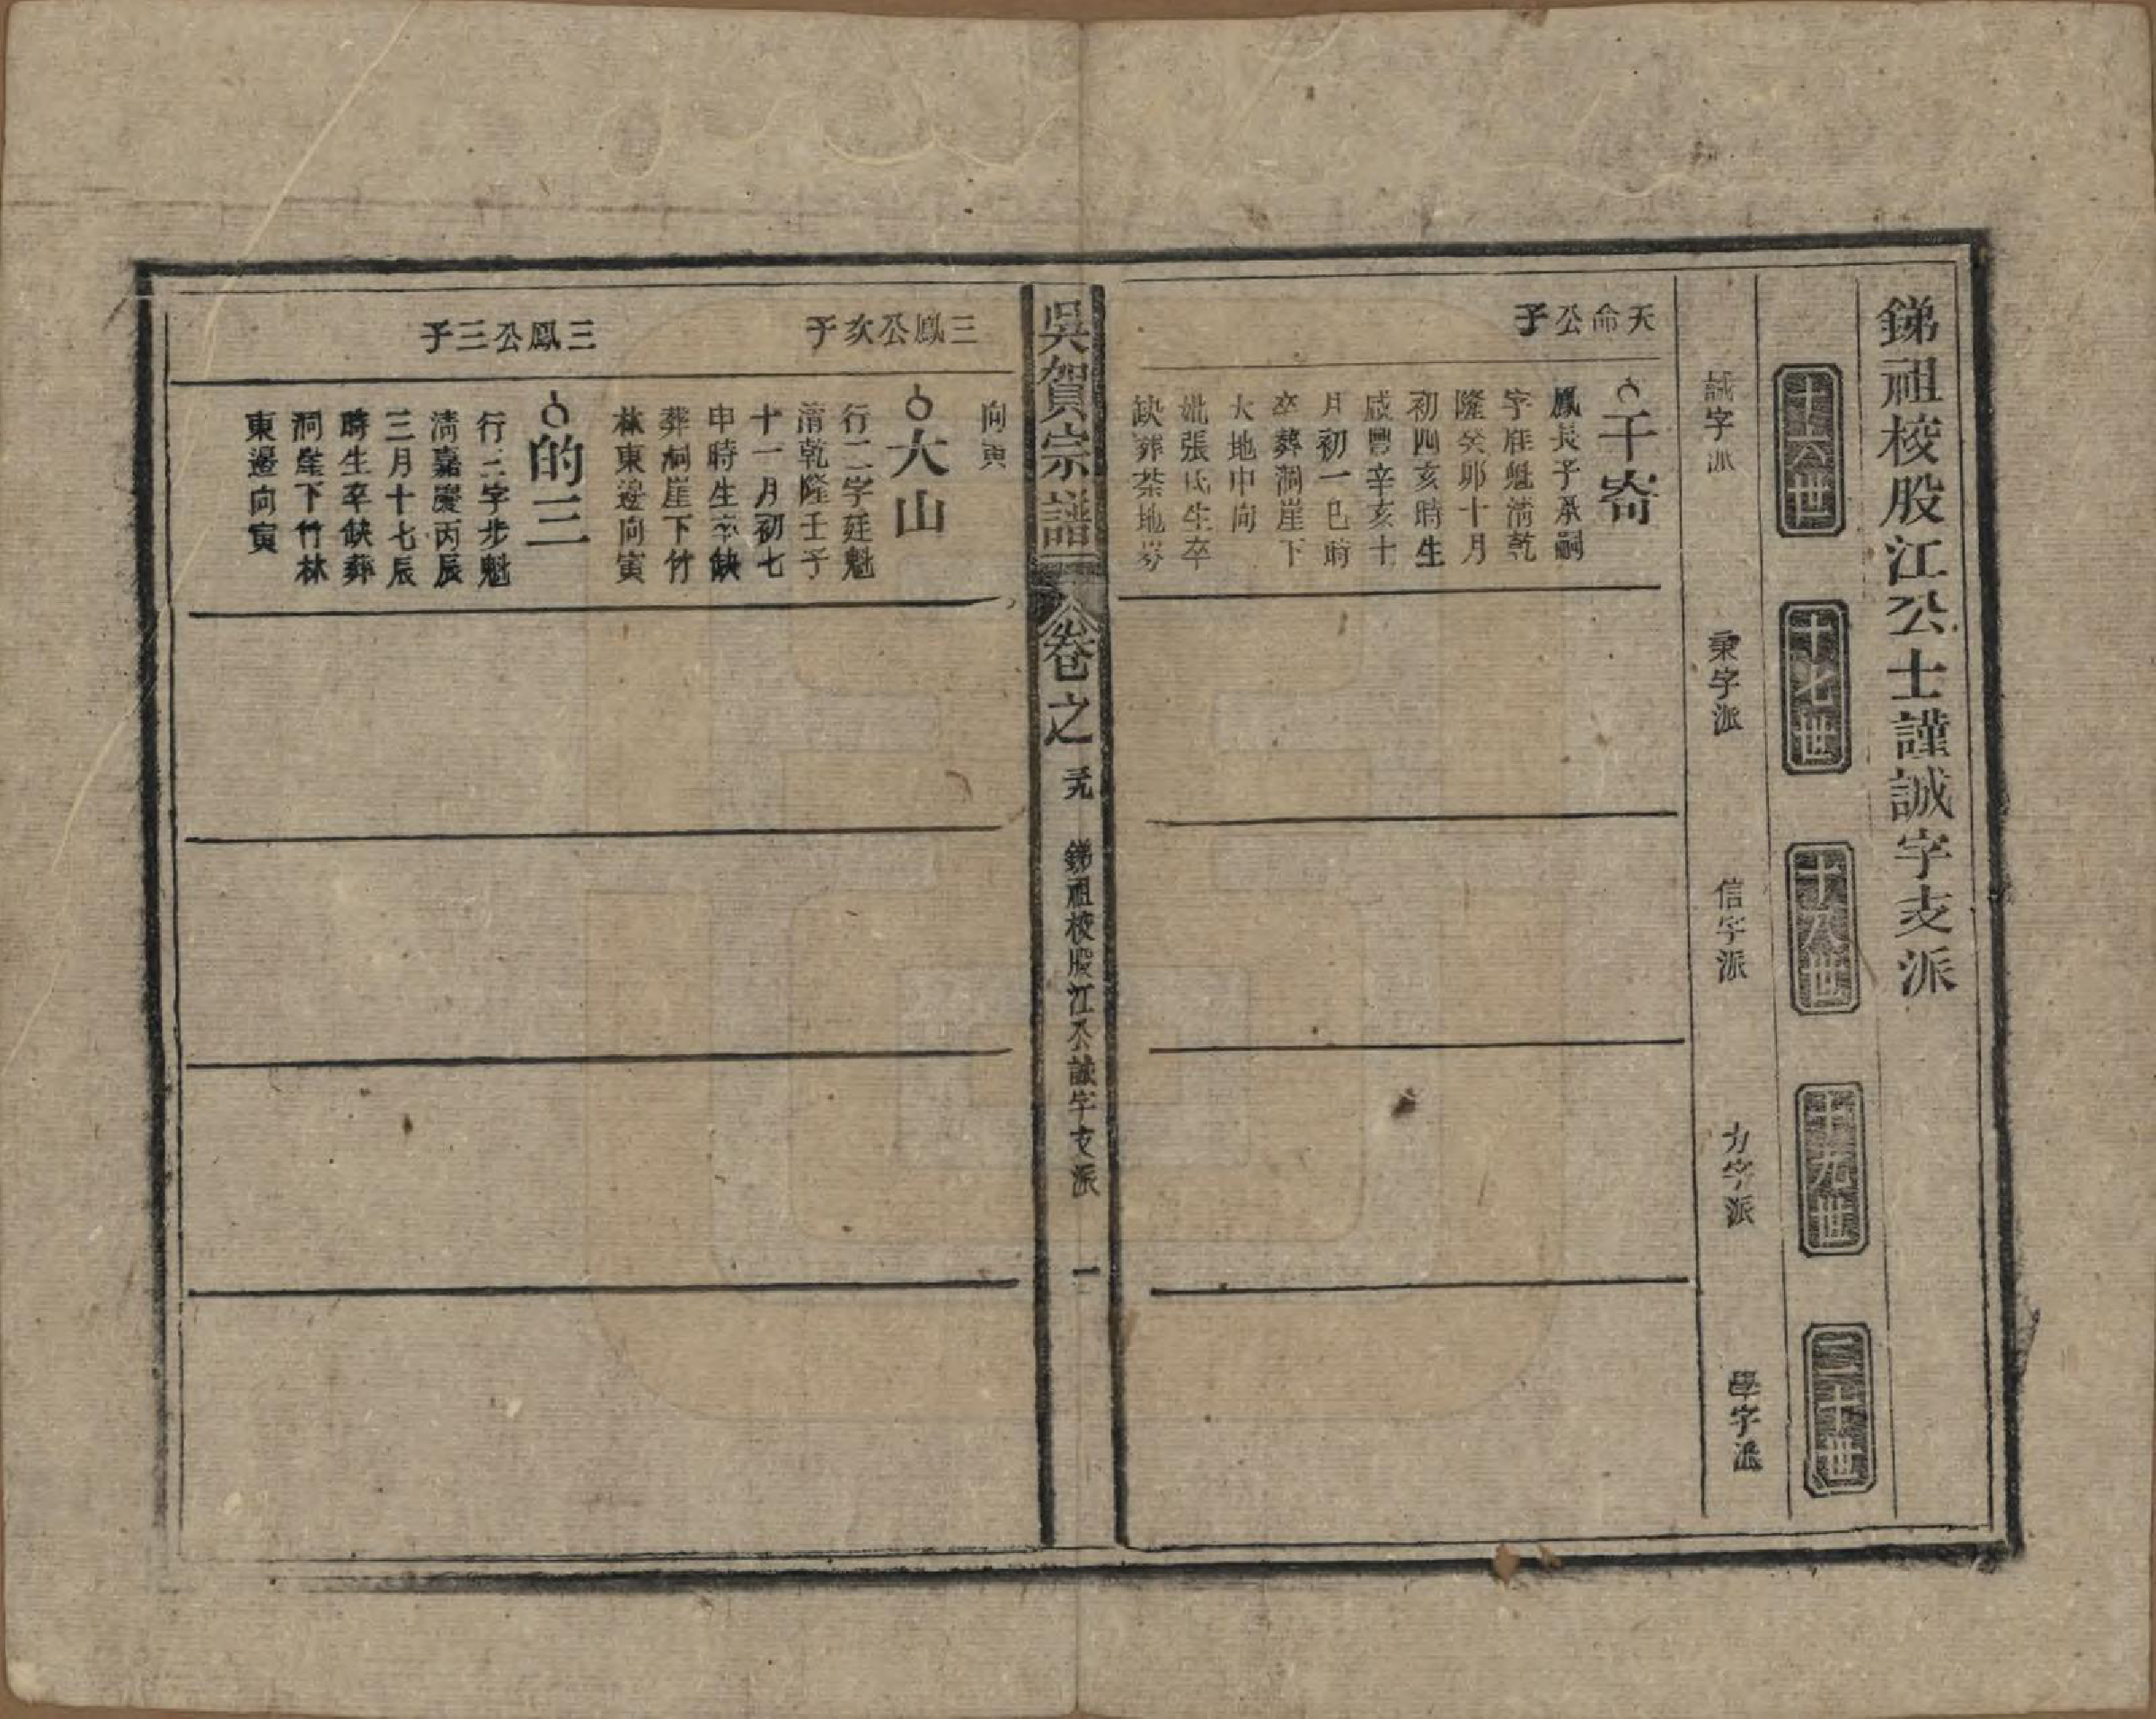 錦祖校股江公士謹誠字支派
十六世
十七世
十八世
十九世
二十世
誠字派
秉字派
信字派
力字派
學字派
天命公子
千嵜
鳳長子承嗣
字雄魁清乾
隆癸卯十月
初四亥時生
咸豐辛亥十
月初一巳時
卒葬洞崖下
大地中向
妣張氏生卒
缺葬茶地
吳賀宗譜
卷之
錦祖校股江公誠字支派
一
向寅
三鳳公次子
大山
行二字廷魁
清乾隆壬子
十一月初七
申時生卒缺
葬洞崖下竹
林東邊向寅
三鳳公三子
的三
行三字步魁
清嘉慶丙辰
三月十七辰
時生卒缺葬
洞崖下竹林
東邊向寅